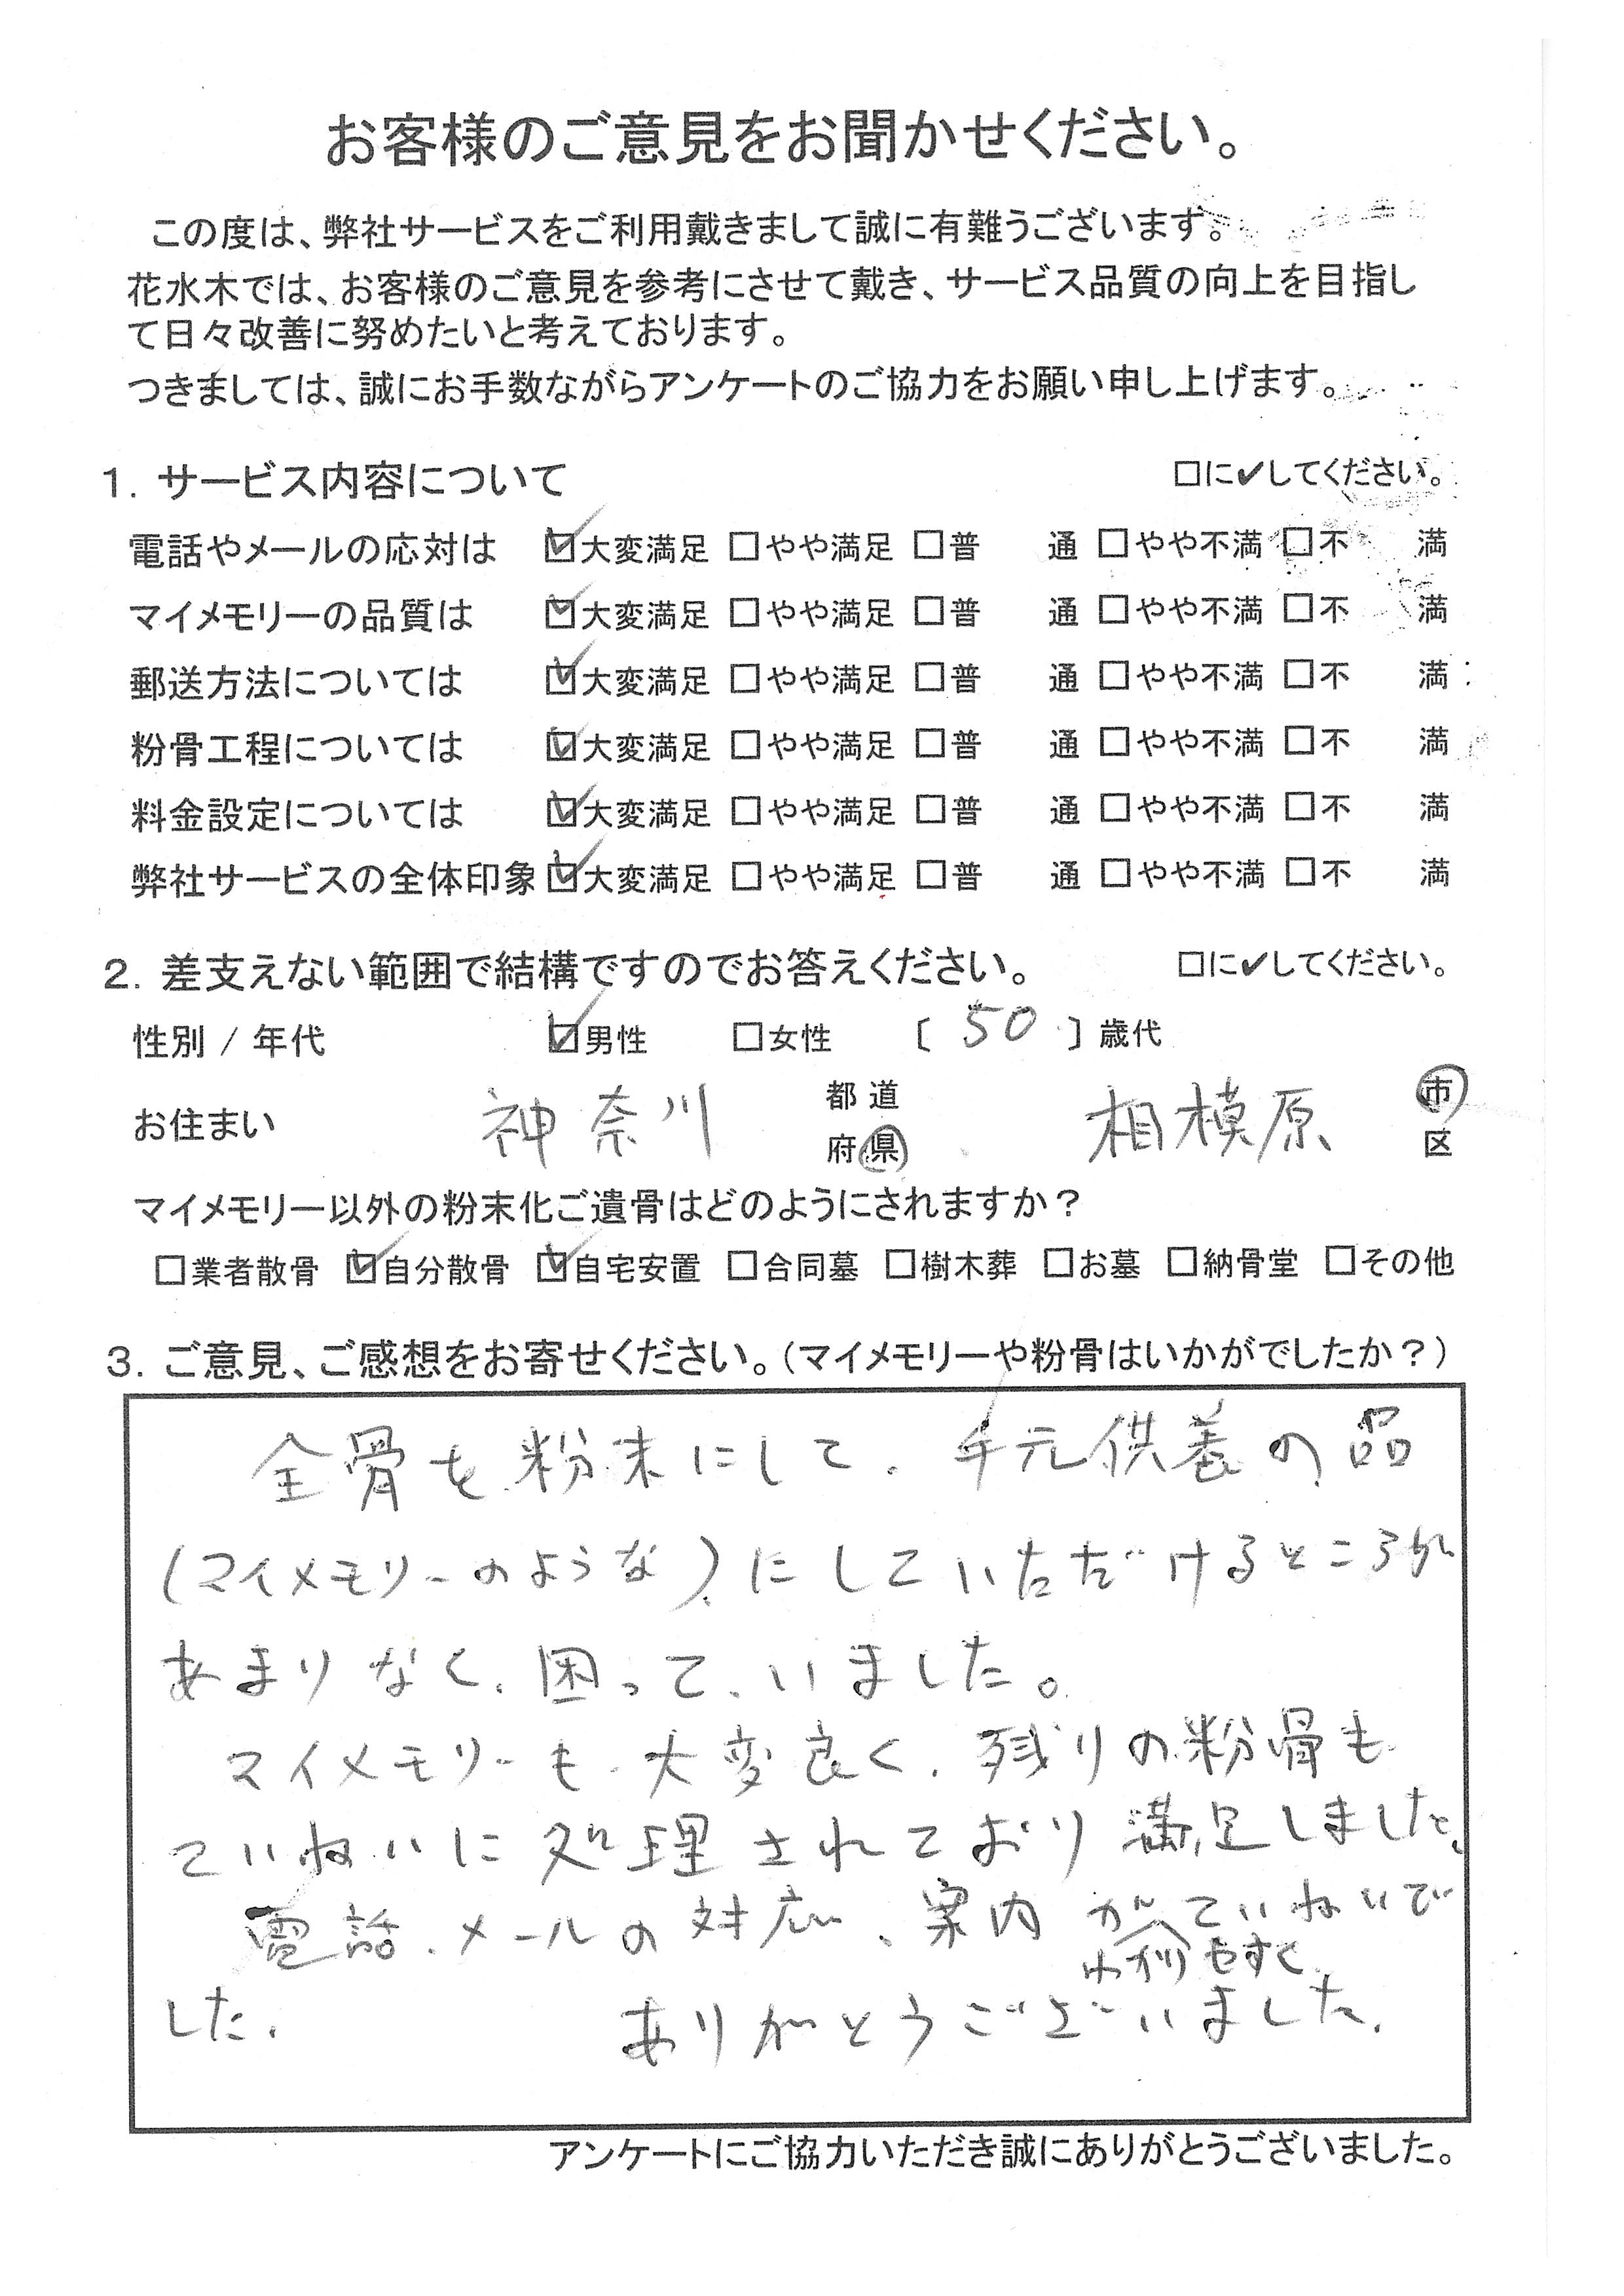 お客様のご意見をお聞かせください。
この度は、弊社サービスをご利用戴きまして誠に有難うございます。
花水木では、お客様のご意見を参考にさせて戴き、サービス品質の向上を目指し
て日々改善に努めたいと考えております。
つきましては、誠にお手数ながらアンケートのご協力をお願い申し上げます。
1. サービス内容について □に✔してください。
電話やメールの応対は ☑大変満足 □やや満足 □普 通 □やや不満 □不 満
マイメモリーの品質は ☑大変満足 □やや満足 □普 通 □やや不満 □不 満
郵送方法については ☑大変満足 □やや満足 □普 通 □やや不満 □不 満
粉骨工程については ☑大変満足 □やや満足 □普 通 □やや不満 □不 満
料金設定については ☑大変満足 □やや満足 □普 通 □やや不満 □不 満
弊社サービスの全体印象 ☑大変満足 □やや満足 □普 通 □やや不満 □不 満
2. 差支えない範囲で結構ですのでお答えください。 □に✔してください。
性別 / 年代 ☑男性 □女性 〔 50 〕歳代
お住まい 神奈川 都道府県 相模原 市区
マイメモリー以外の粉末化ご遺骨はどのようにされますか？
□業者散骨 ☑自分散骨 ☑自宅安置 □合同墓 □樹木葬 □お墓 □納骨堂 □その他
3. ご意見、ご感想をお寄せください。（マイメモリーや粉骨はいかがでしたか？）
全骨を粉末にして、手元供養の品
(マイメモリーのような)にしていただけるところが
あまりなく、困って、いました。
マイメモリーも大変良く、残りの粉骨も
ていねいに処理されており満足しました。
電話、メールの対応、案内がていねいで
わかりやすく
した。 ありがとうございました。
アンケートにご協力いただき誠にありがとうございました。